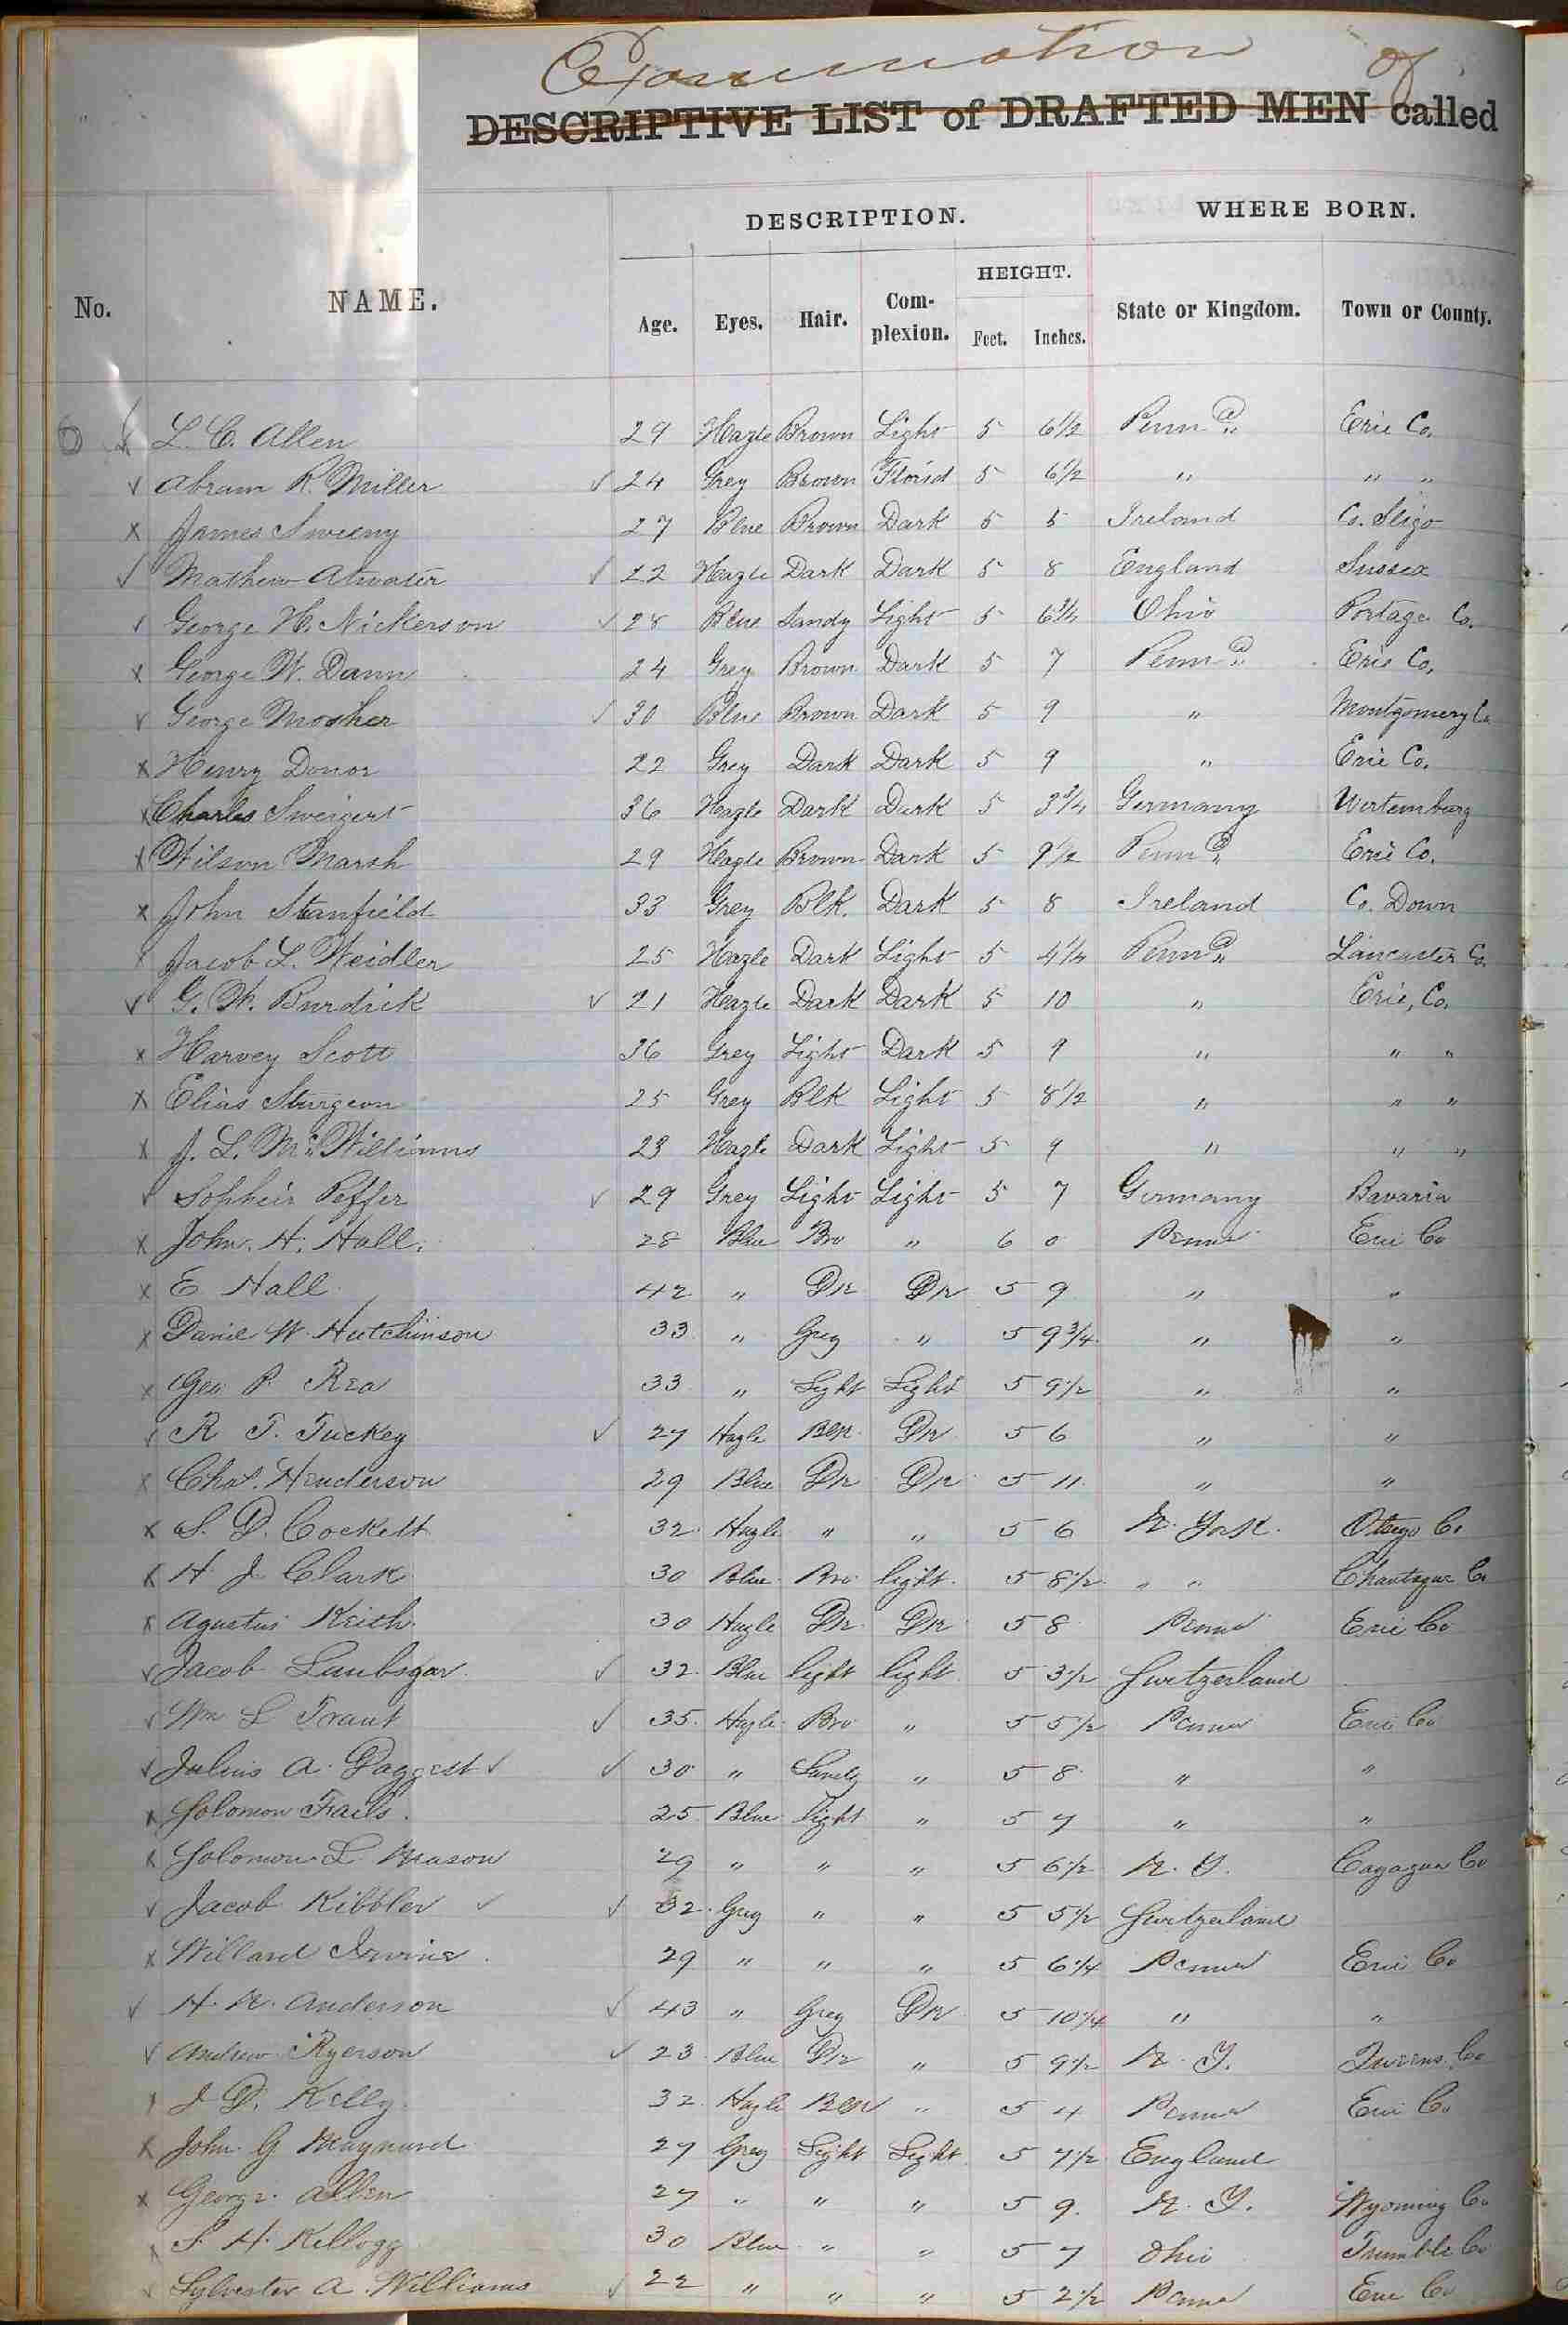 Examination of
DESCRIPTIVE LIST of DRAFTED MEN called
DESCRIPTION. WHERE BORN.
No. NAME. Age. Eyes. Hair. Complexion. HEIGHT. Feet. Inches. State or Kingdom. Town or County.
6 L. C. Allen 29 Hazle Brown Light 5 6½ Penna Erie Co.
✓ Abram R. Miller ✓ 24 Grey Brown Florid 5 6½ " " "
x James Sweeny 27 Blue Brown Dark 5 5 Ireland Co. Sligo
✓ Mathew Atwater ✓ 22 Hazle Dark Dark 5 8 England Sussex
✓ George H. Nickerson ✓ 28 Blue Sandy Light 5 Ohio Portage Co.
x George W. Dann 24 Grey Brown Dark 5 7 Penna Erie Co.
✓ George Mosher ✓ 30 Blue Brown Dark 5 9 " Montgomery Co
x Henry Donor 22 Grey Dark Dark 5 9 " Erie Co.
x Charles Sweigert 36 Hazle Dark Dark 5 3¾ Germany Wurtemburg
x Wilson Marsh 29 Hazle Brown Dark 5 9½ Penna Erie Co.
x John Stanfield 33 Grey Blk. Dark 5 8 Ireland Co. Down
x Jacob L. Weidler 25 Hazle Dark Light 5 4¼ Penna Lancaster Co.
✓ G. W. Burdick ✓ 21 Hazle Dark Dark 5 10 " Erie, Co.
x Harvey Scott 36 Grey Light Dark 5 9 " " "
x Elias Sturgeon 25 Grey Blk Light 5 8½ " " "
x J. L. McWilliams 23 Hazle Dark Light 5 9 " " "
✓ Peffer ✓ 29 Grey Light Light 5 7 Germany Bavaria
x John. H. Hall. 28 Blue Bro " 6 0 Penna Erie Co
x E Hall 42 " Dk Dk 5 9 " "
x Daniel W. Hutchinson 33 " Grey " 5 9¾ " "
x Geo P. Rea 33 " Light Light 5 9½ " "
✓ R T. Tuckey ✓ 27 Hazle Blk Dk 5 6 " "
x Chas. Henderson 29 Blue Dk Dk 5 11 " "
x S. D. Cockett 32 Hazle " " 5 6 N. York. Otsego Co.
x H J Clark 30 Blue Bro light 5 8½ " " Chautaque Co
x Agustus Keith 30 Hazle Dk Dk 5 8 Penna Erie Co
✓ Jacob Laubsgar ✓ 32 Blue light light 5 3½ Switzerland
✓ Wm L Traut ✓ 35 Hazle Bro " 5 5½ Penna Erie Co
✓ Julius A. Daggest ✓ ✓ 30 " Sandy " 5 8 " "
x Solomon Frails 25 Blue light " 5 7 " "
x Solomon L Mason 29 " " " 5 6½ N. Y. Cayagua Co
✓ Jacob Kibbler ✓ ✓ 32 Grey " " 5 5½ Switzerland
x Willard Irvine 29 " " " 5 6¼ Penna Erie Co
✓ H. N. Anderson ✓ 43 " Grey Dk 5 10¼ " "
✓ Andrew Ryerson ✓ 23 Blue Dk " 5 9½ N. Y. Queens Co
J D. Kelly 32 Hazle Blk " 5 4 Penna Erie Co
x John G Maynard 27 Grey Light Light 5 7½ England
x George Allen 27 " " " 5 9 N. Y. Wyoming Co
x S. H. Kellogg 30 Blue " " 5 7 Ohio Trumble Co
✓ Sylvester A. Williams ✓ 22 " " " 5 2½ Penna Erie Co